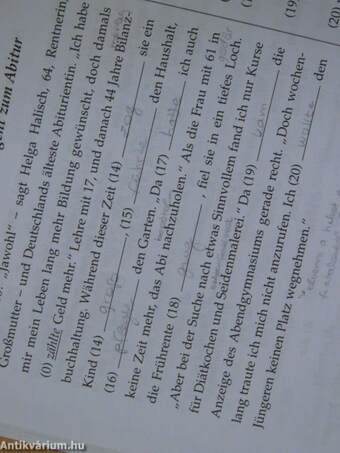 zum Abitur
"Jawohl" – sagt Helga Halisch, 64, Rentnerin,
Großmutter – und Deutschlands älteste Abiturientin. „Ich habe
mir mein Leben lang mehr Bildung gewünscht, doch damals
(0) zählte Geld mehr." Lehre mit 17, und danach 44 Jahre Bilanz-
buchhaltung. Während dieser Zeit (14) zog sie ein
Kind (14) groß, (15) führte den Haushalt,
(16) pflegte den Garten. „Da (17) hatte ich auch
keine Zeit mehr, das Abi nachzuholen." Als die Frau mit 61 in
die Frührente (18) ging, fiel sie in ein tiefes Loch.
„Aber bei der Suche nach etwas Sinnvollem fand ich nur Kurse
für Diätkochen und Seidenmalerei." Da (19) kam die
Anzeige des Abendgymnasiums gerade recht. „Doch wochen-
lang traute ich mich nicht anzurufen. Ich (20) wollte den
Jüngeren keinen Platz wegnehmen."
(19)
(20)
Antikvárium.hu